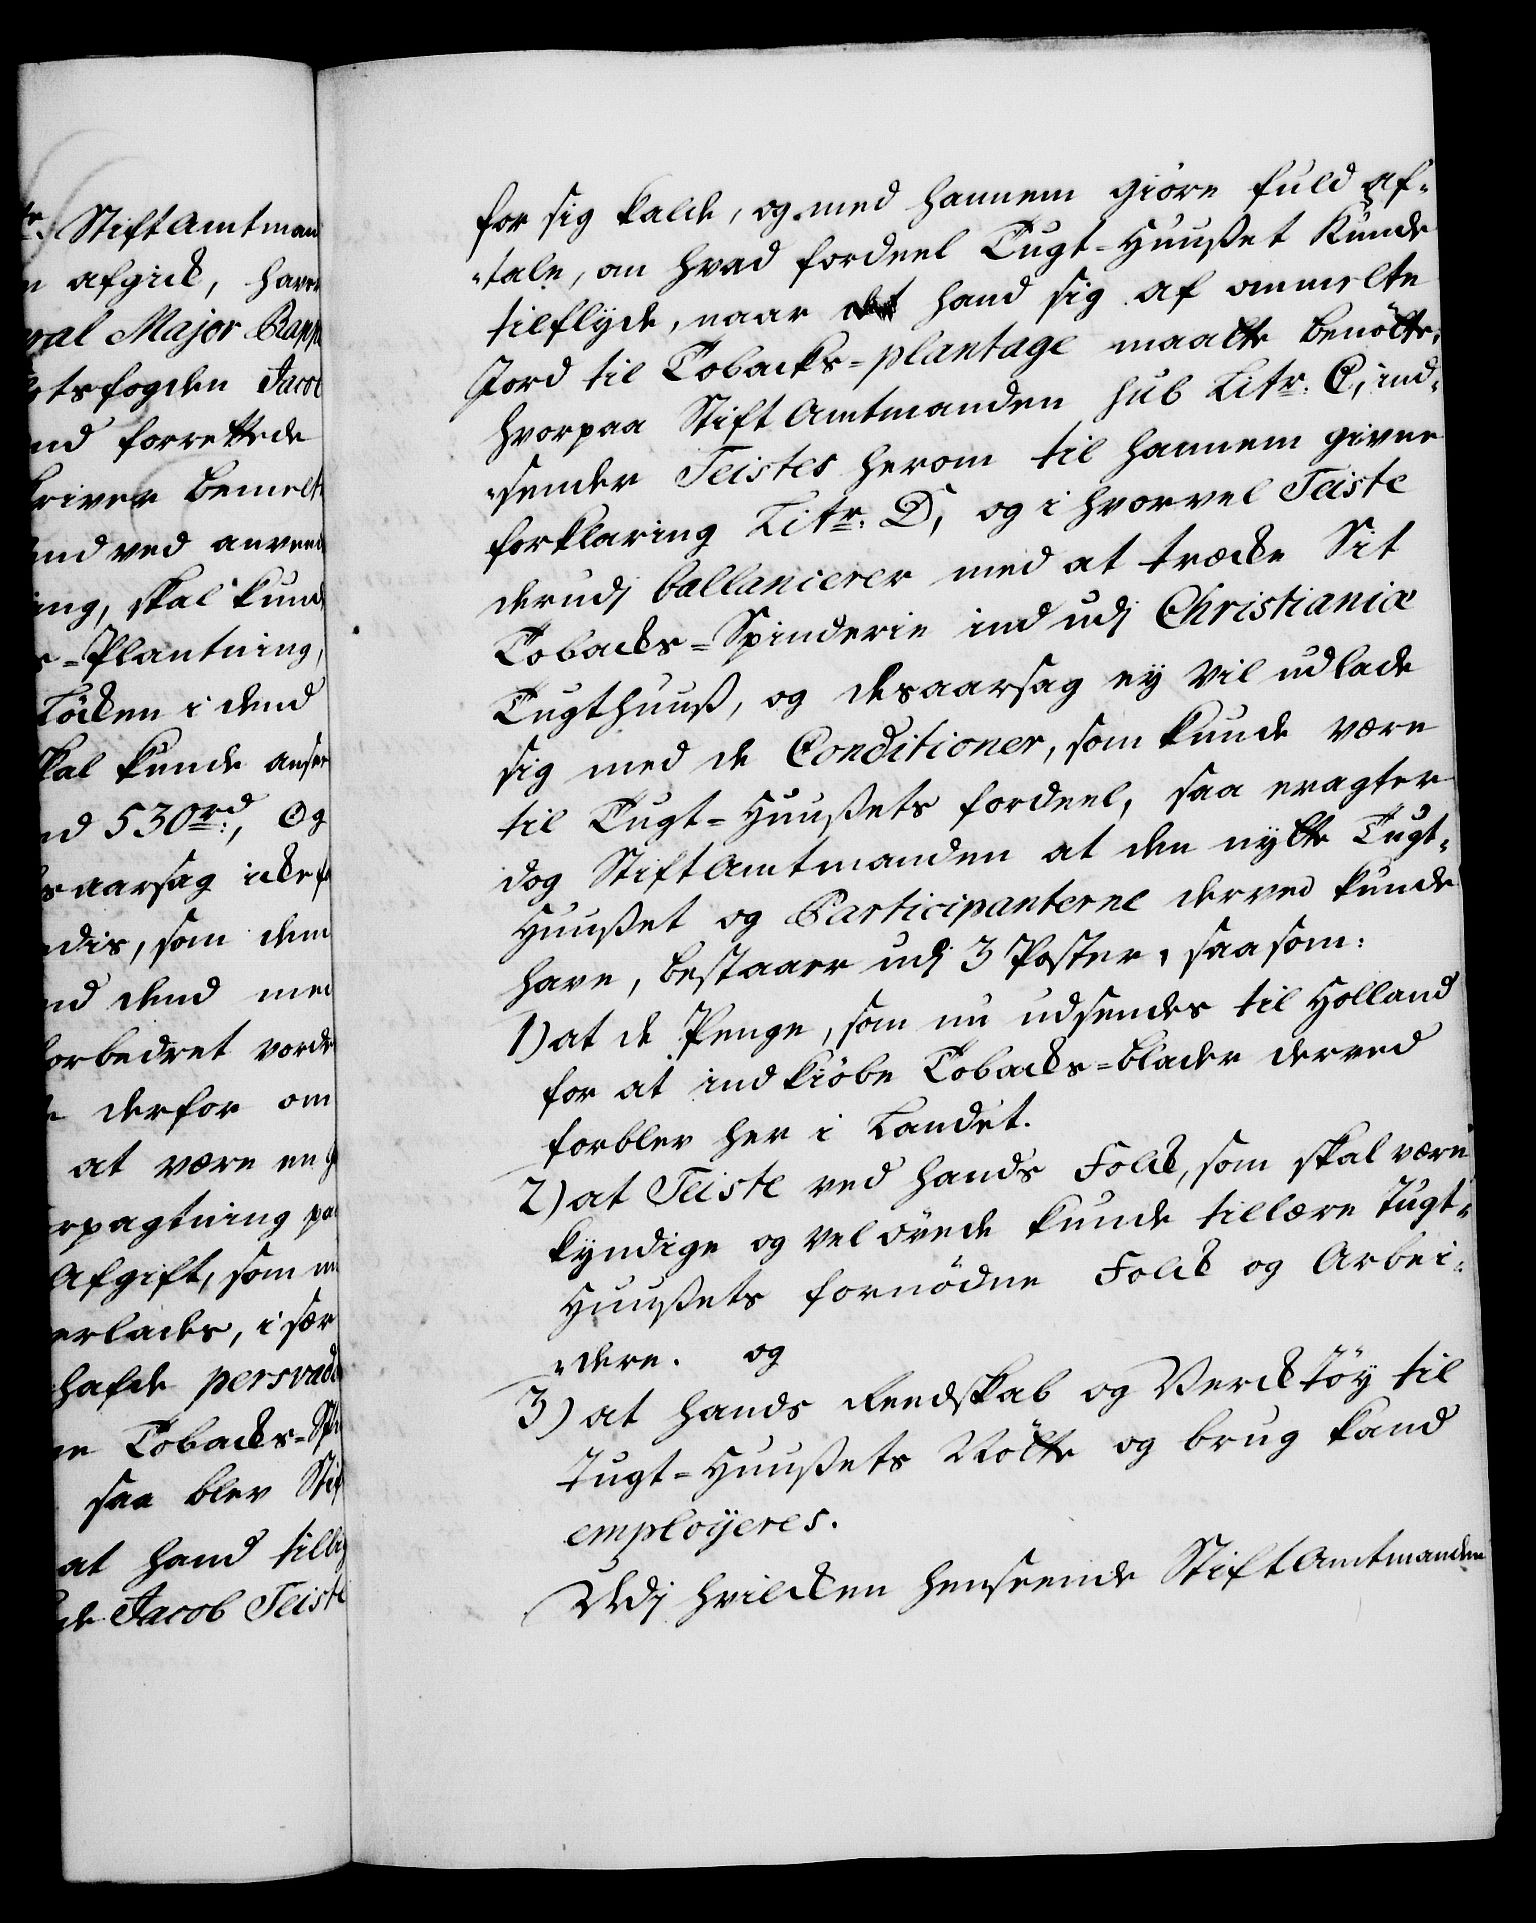 te. Stift Amtman
n afgick, haver
eral Major Rappe
etsfogden Jacob
nd forrettede
kriver bemelt
ind ved anvend
ing, skal kund
s=Plantning,
Löcken i dend
skal kunde anse
nd 530 rd:, Og
saarsag icke f
dis, som dem
nd dend med
forbedret vorde
derfor om
at være en
rpagtning paa
Afgift, som
erlades, i sær
hafde persvade
ne Tobacks=Spi
saa blev Stif
at hand tillig
de Jacob Teiste
for sig kalde, og med hannem giöre fuld af=
tale, om hvad fordeel Tugt=Huuset kunde
tilflyde, naar hand sig af ommelte
Jord til Tobacks=plantage maatte benötte,
hvorpaa Stift Amtmanden sub Litr. C, ind=
sender Teistes herom til hannem given
forklaring Litr. D, og i hvorvel Teiste
derudj ballancerer med at træcke Sit
Tobacks=Spinderie ind udj Christianiæ
Tugthuus, og desaarsag ey vil udlade
sig med de Conditioner, som kunde være
til Tugt=Huusets fordeel, saa eragter
dog Stift Amtmanden at den nytte Tugt=
Huuset og Participanterne derved kunde
have, bestaaer udj 3 Poster, saasom:
1) at de Penge, som nu udsendes til Holland
for at indkiöbe Tobacks=blader derved
forblev her i Landet.
2) at Teiste ved hands Folck, som skal være
kyndige og vel övede kunde tillære Tugt=
Huusets fornödne Folck og Arbei=
dere. og
3) at hands Reedskab og Vercktöy til
Tugt=Huusets Nötte og brug kand
employeres.
Udj hvilcken henseende Stift Amtmanden